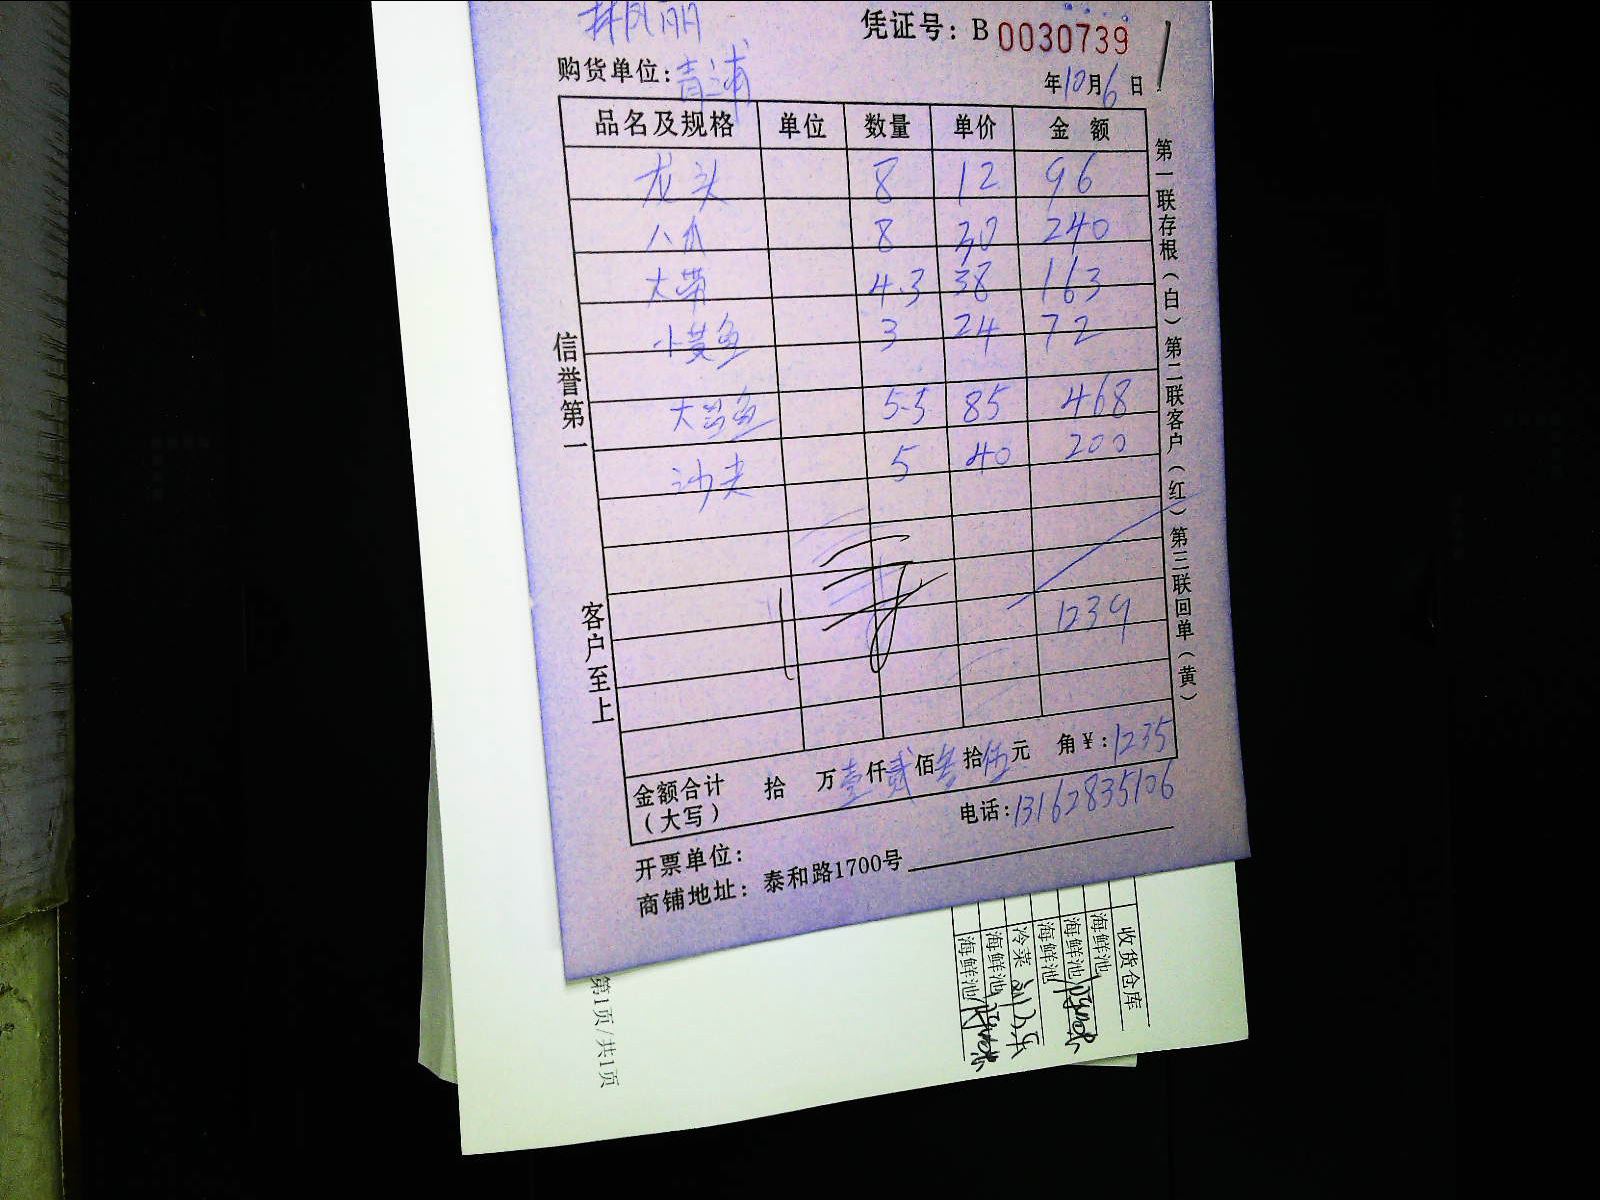 林凤丽
凭证号：B 0030739
购货单位：青浦
年10月6日
品名及规格 单位 数量 单价 金额
龙头 8 12 96
八爪 8 30 240
大带 4.3 38 163
小黄鱼 3 24 72
大鲳鱼 5.5 85 468
沙尖 5 40 200
1239
金额合计（大写） 拾 万壹仟贰佰叁拾伍元 角￥：1235
电话：13162835106
开票单位：
商铺地址：泰和路1700号
信誉第一
客户至上
第一联存根（白）第二联客户（红）第三联回单（黄）
收货仓库
海鲜池
海鲜池
海鲜池
冷菜
海鲜池
海鲜池
第1页/共1页